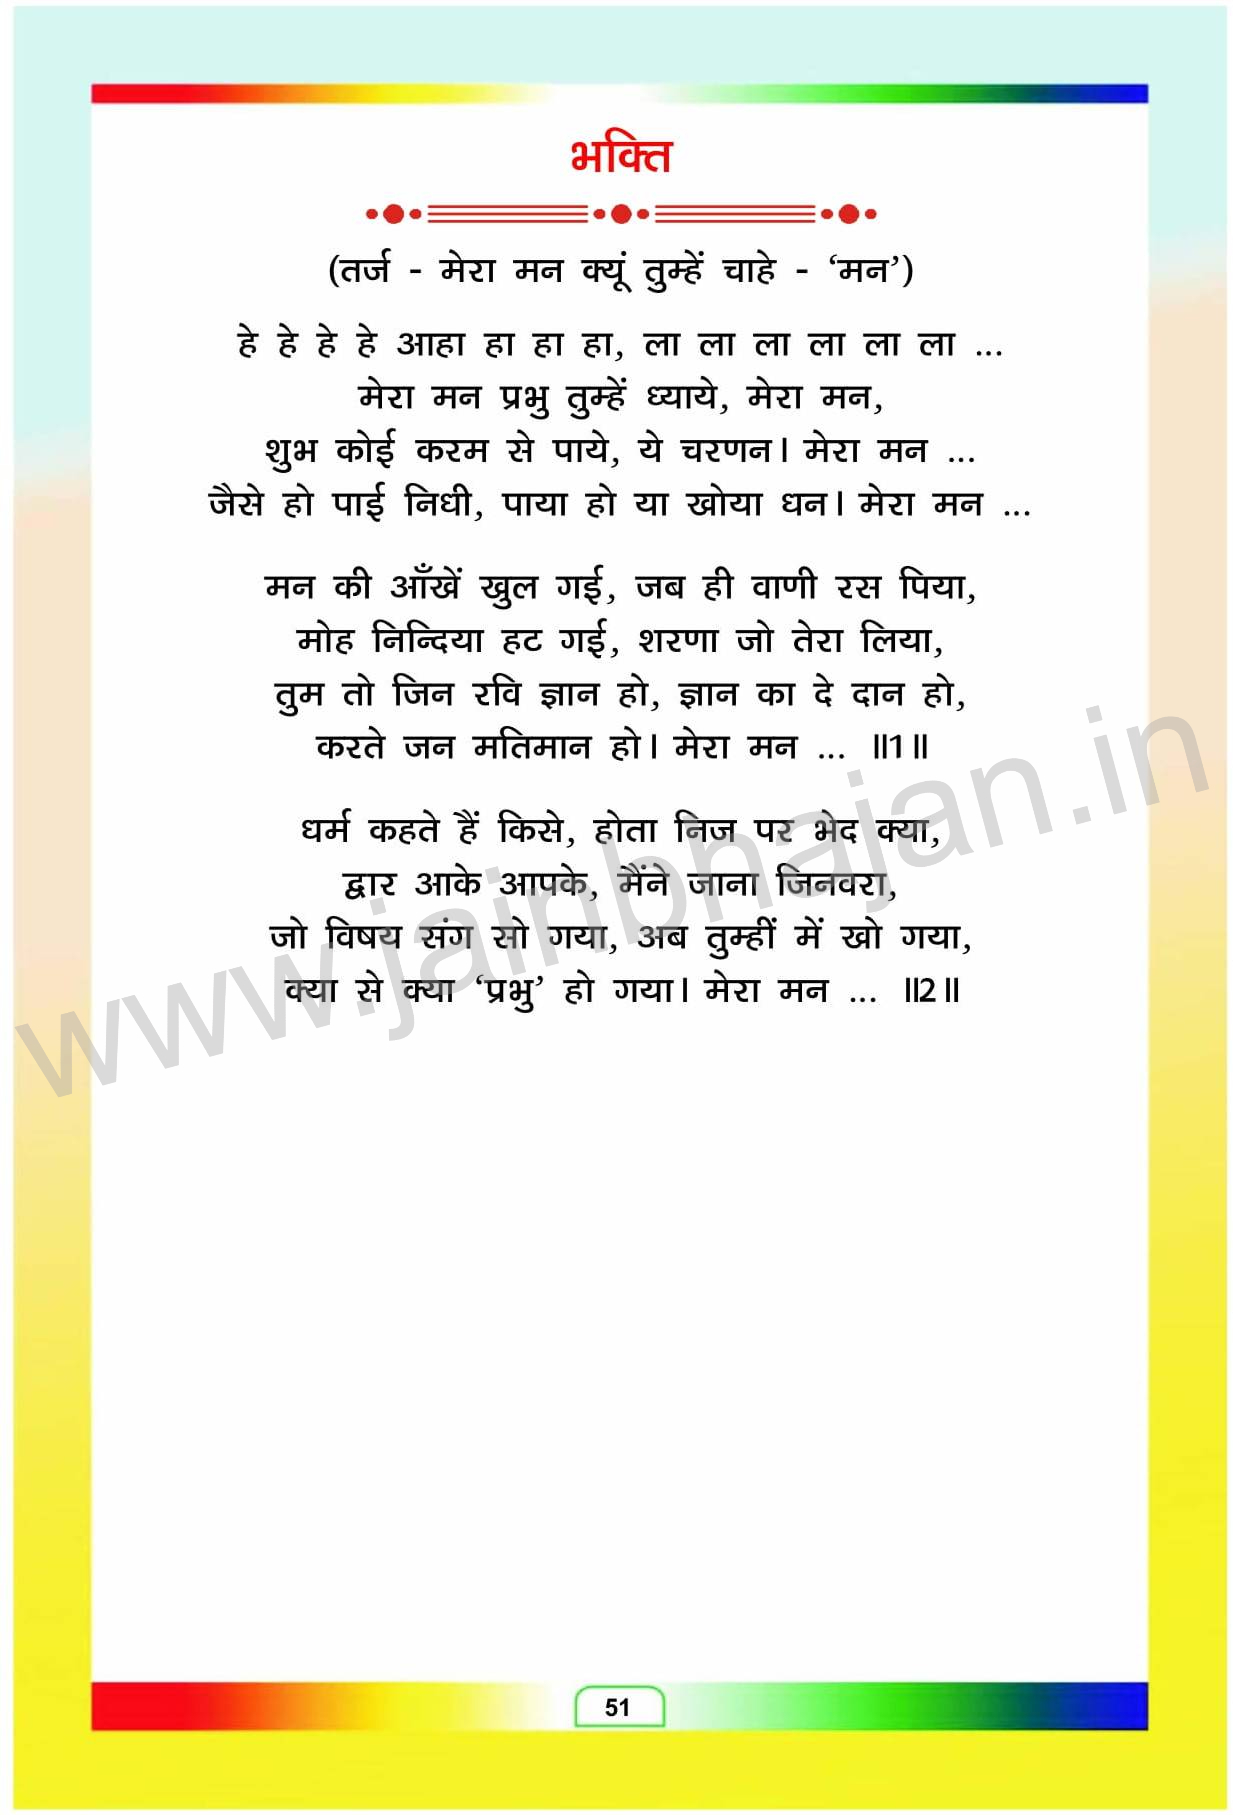 भक्ति
(तर्ज - मेरा मन क्यूं तुम्हें चाहे - ‘मन’)
हे हे हे हे आहा हा हा हा, ला ला ला ला ला ला ...
मेरा मन प्रभु तुम्हें ध्याये, मेरा मन,
शुभ कोई करम से पाये, ये चरणन। मेरा मन ...
जैसे हो पाई निधी, पाया हो या खोया धन। मेरा मन ...
मन की आँखें खुल गई, जब ही वाणी रस पिया,
मोह निन्दिया हट गई, शरणा जो तेरा लिया,
तुम तो जिन रवि ज्ञान हो, ज्ञान का दे दान हो,
करते जन मतिमान हो। मेरा मन ... ॥1॥
धर्म कहते हैं किसे, होता निज पर भेद क्या,
द्वार आके आपके, मैंने जाना जिनवरा,
जो विषय संग सो गया, अब तुम्हीं में खो गया,
क्या से क्या ‘प्रभु’ हो गया। मेरा मन ... ॥2॥
www.jainbhajan.in
51